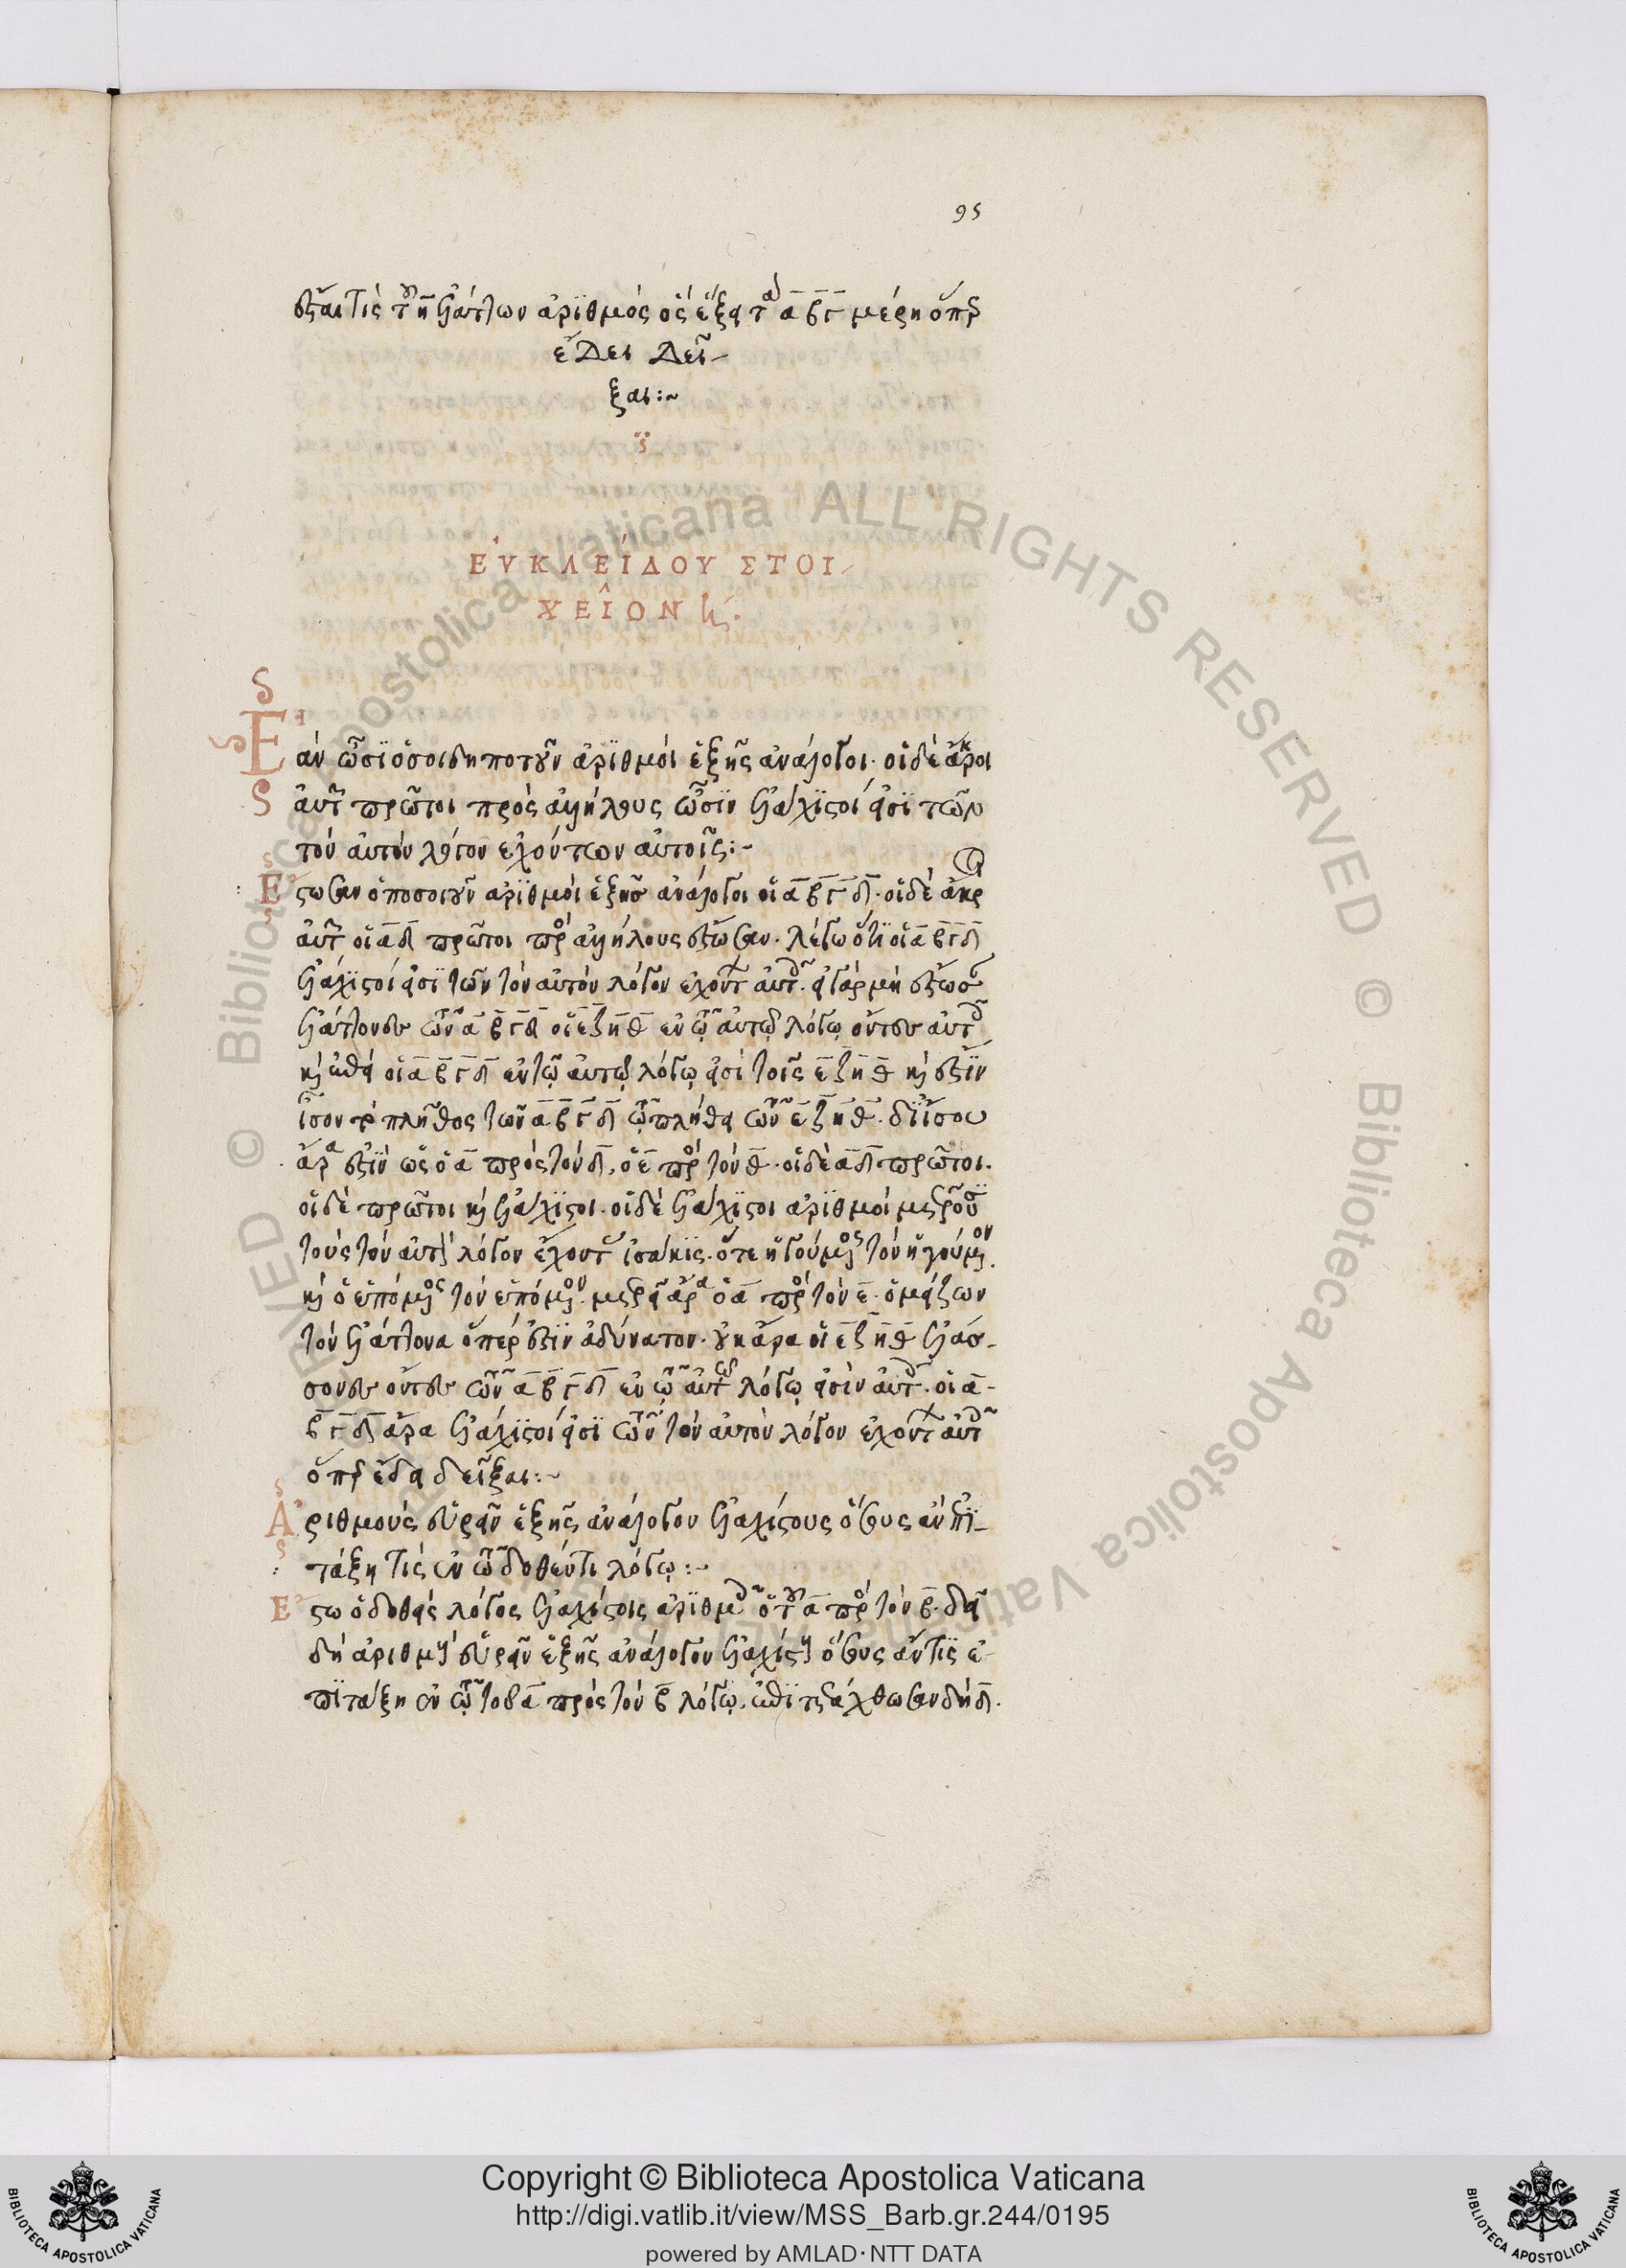 95
ἔσται τις τοῦ η ἐλάττων ἀριθμός ὃς ἕξει τὰ α β γ μέρη ὅπερ
ἔδει δεῖ-
ξαι:~
ΕὐΚΛΕΊΔΟΥ ΣΤΟΙ-
ΧΕΊΟΝ η.
Εὰν ὦσϊ ὁσοιδηποτοῦν ἀρϊθμοὶ ἑξῆς ἀνάλογοι· οἱ δὲ ἄκροι
αὐτῶν πρῶτοι πρὸς ἀλλήλους ὦσϊν ἐλάχϊστοί εἰσϊ τῶν
τὸν αὐτὸν λόγον ἐχόντων αὐτοῖς:~
Ἔστωσαν ὁποσοιοῦν ἀρϊθμοὶ ἑξῆς ἀνάλογοι οἱ α β γ δ· οἱ δὲ ἄκροι
αὐτῶν οἱ α δ πρῶτοι πρὸς ἀλλήλους ἔστωσαν· λέγω ὅτϊ οἱ α β γ δ
ἐλάχϊστοί εἰσϊ τῶν τὸν αὐτὸν λόγον ἐχόντων αὐτοῖς· εἰ γὰρ μὴ ἔστωσαν
ἐλάττονες τῶν α β γ δ οἱ ε ζ η θ ἐν τῷ αὐτῷ λόγῳ ὄντες αὐτοῖς
καὶ ἐπεὶ οἱ α β γ δ ἐν τῷ αὐτῷ λόγῳ εἰσὶ τοῖς ε ζ η θ καὶ ἔστϊν
ἴσον τὸ πλῆθος τῶν α β γ δ τῷ πλήθει τῶν ε ζ η θ· δϊ ἴσου
ἄρα ἐστϊν ὡς ὁ α πρὸς τὸν δ, ὁ ε πρὸς τὸν θ· οἱ δὲ α δ πρῶτοι·
οἱ δὲ πρῶτοι καὶ ἐλάχϊστοι· οἱ δὲ ἐλάχϊστοι ἀρϊθμοὶ μετροῦσϊ
τοὺς τὸν αὐτὸν λόγον ἔχοντας ἰσάκϊς· ὅ τε ἡγούμενος τὸν ἡγούμενον·
καὶ ὁ ἑπόμενος τὸν ἑπόμενον· μετρεῖ ἄρα ὁ α πρὸς τὸν ε· ὁ μείζων
τὸν ἐλάττονα ὅπερ ἐστϊν ἀδύνατον· οὐκ ἄρα οἱ ε ζ η θ ἐλάσ-
σονες ὄντες τῶν α β γ δ ἐν τῷ αὐτῷ λόγῳ εἰσὶν αὐτοῖς· οἱ α-
β γ δ ἄρα ἐλάχϊστοί εἰσϊ τῶν τὸν αὐτὸν λόγον ἐχόντων αὐτοῖς
ὅπερ ἔδει δεῖξαι:~
Ἀριθμοὺς εὑρεῖν ἑξῆς ἀνάλογον ἐλαχίστους ὅσους ἂν ἐπϊ-
τάξῃ τὶς ἐν τῷ δοθέντι λόγῳ:~
Ἔστω ὁ δοθεὶς λόγος ἐλαχίστοις ἀρϊθμοῖς ὁ τοῦ α πρὸς τὸν β· δεῖ
δὴ ἀριθμοὺς εὑρεῖν ἑξῆς ἀνάλογον ἐλαχίστους ὅσους ἄν τϊς ἐ-
πϊτάξῃ ἐν τῷ τοῦ α πρὸς τὸν β λόγῳ· ἐπϊτετάχθωσαν δὴ δ.